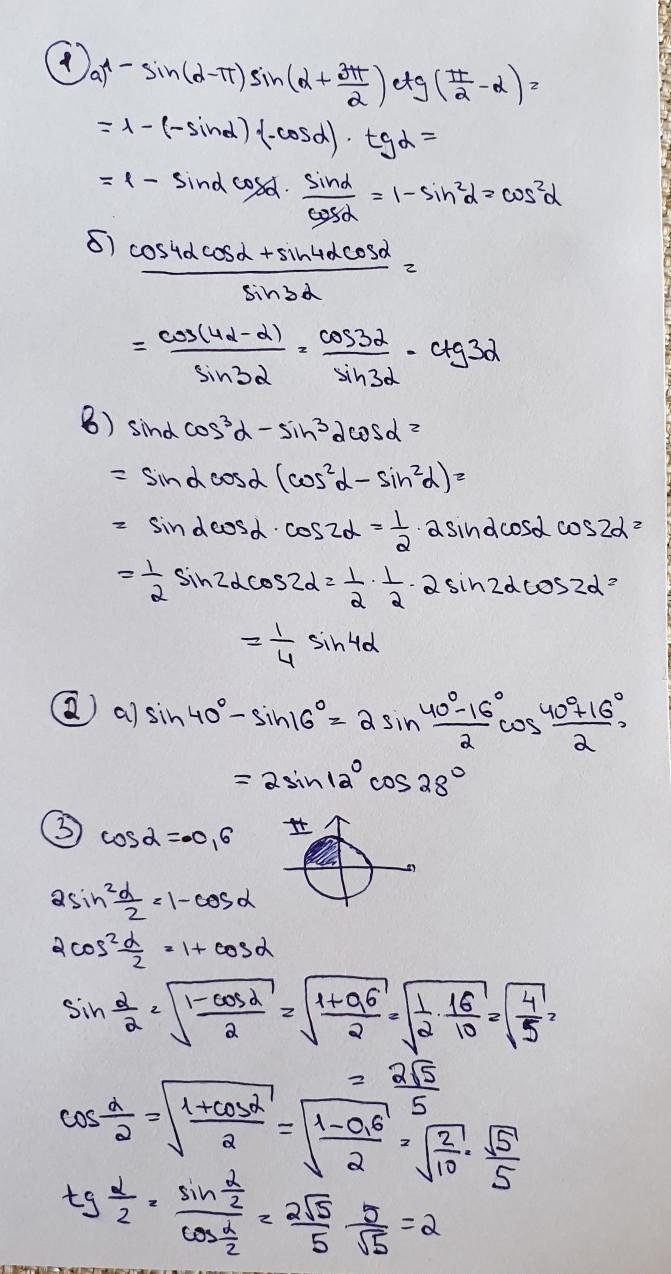 ① а) 1 - sin(α-π) sin(α + 3π/2) ctg(π/2 - α) =
= 1 - (-sinα)(-cosα) · tgα =
= 1 - sinα cosα · sinα/cosα = 1 - sin²α = cos²α
б) (cos4α cosα + sin4α cosα)/sin3α =
= cos(4α-α)/sin3α = cos3α/sin3α = ctg3α
в) sinα cos³α - sin³α cosα =
= sinα cosα (cos²α - sin²α) =
= sinα cosα · cos2α = 1/2 · 2sinα cosα cos2α =
= 1/2 sin2α cos2α = 1/2 · 1/2 · 2 sin2α cos2α =
= 1/4 sin4α
② а) sin40° - sin16° = 2 sin (40°-16°)/2 cos (40°+16°)/2 =
= 2sin12° cos28°
③ cosα = -0,6 II
2sin² α/2 = 1 - cosα
2cos² α/2 = 1 + cosα
sin α/2 = √((1-cosα)/2) = √((1+0,6)/2) = √(1/2 · 16/10) = √(4/5) =
= 2√5/5
cos α/2 = √((1+cosα)/2) = √((1-0,6)/2) = √(2/10) = √5/5
tg α/2 = sin α/2 / cos α/2 = 2√5/5 · 5/√5 = 2